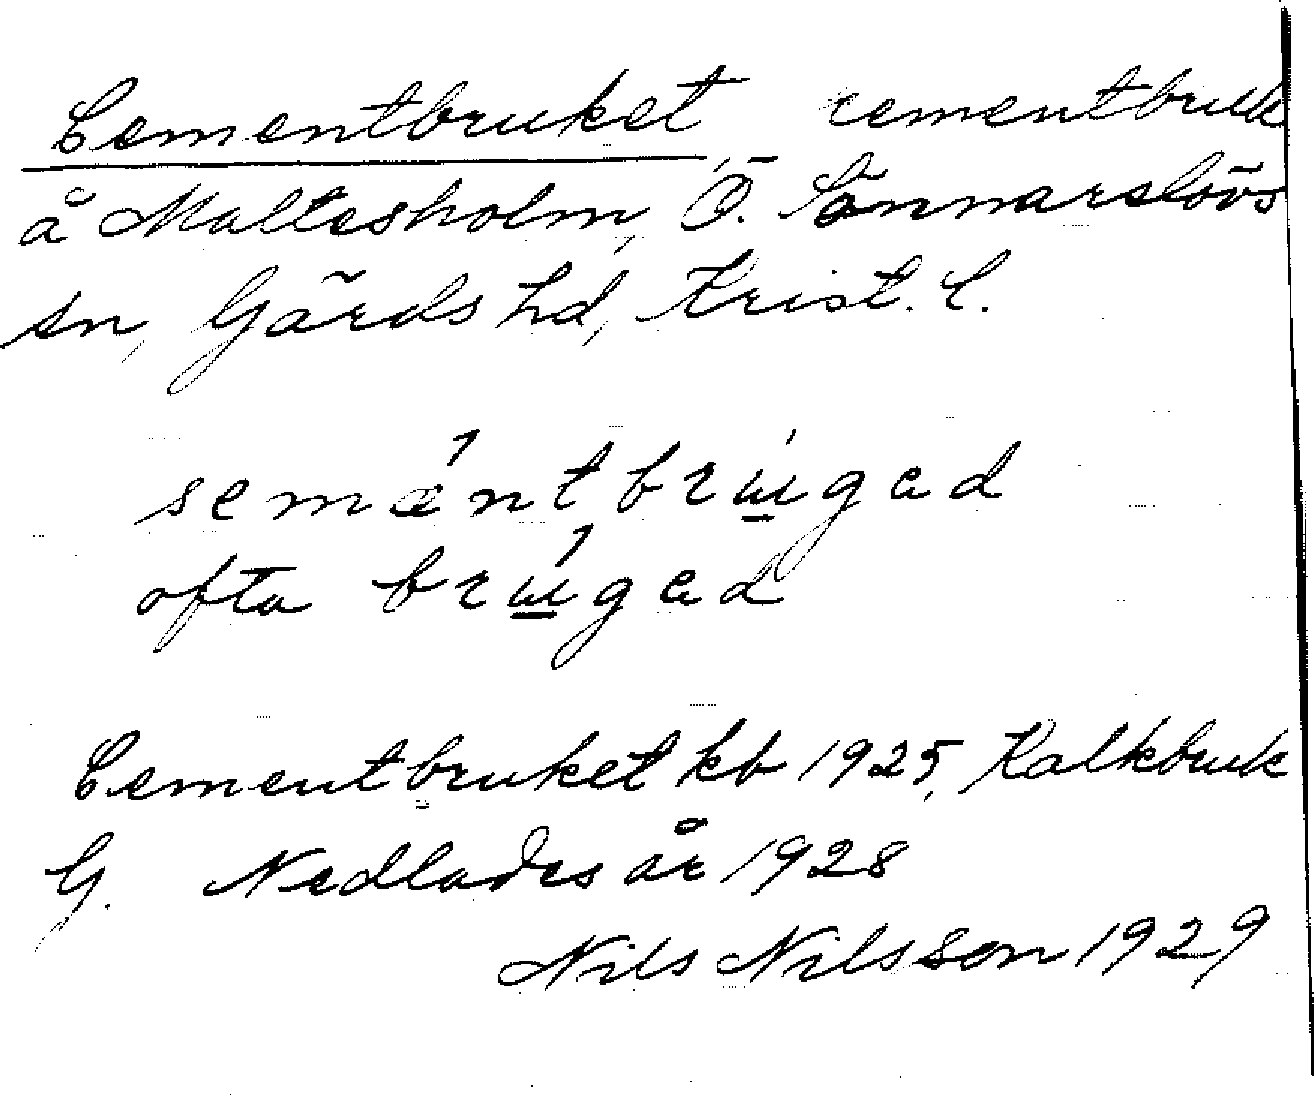 Cementbruket cementbruk
å Maltesholm, Ö. Sönnarslövs
sn, Gärds hd, Krist. l.
semǽntbrɯ́gad
ofta brɯ́gad
Cementbruket kb 1925, Kalkbruk
G. Nedlades år 1928
Nils Nilsson 1929